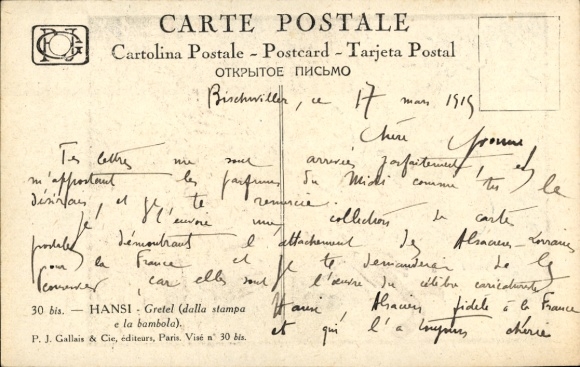 CARTE POSTALE
Cartolina Postale - Postcard - Tarjeta Postal
ОТКРЫТОЕ ПИСЬМО
Bischwiller, ce 17 mars 1919
Chère Yvonne
Tes lettres me sont arrivées parfaitement, et
m'apportant les parfums du Midi comme tu le
désirais, et je te remercie.
Je t'envoie une collection de cartes
postales démontrant l'attachement des Alsaciens-Lorrains
pour la France et je te demanderai de les
conserver, car elles sont l'œuvre du célèbre caricaturiste
Hansi, Alsacien fidèle à la France
et qui l'a toujours chérie
30 bis. — HANSI - Gretel (dalla stampa
e la bambola).
P. J. Gallais & Cie, éditeurs, Paris. Visé n° 30 bis.